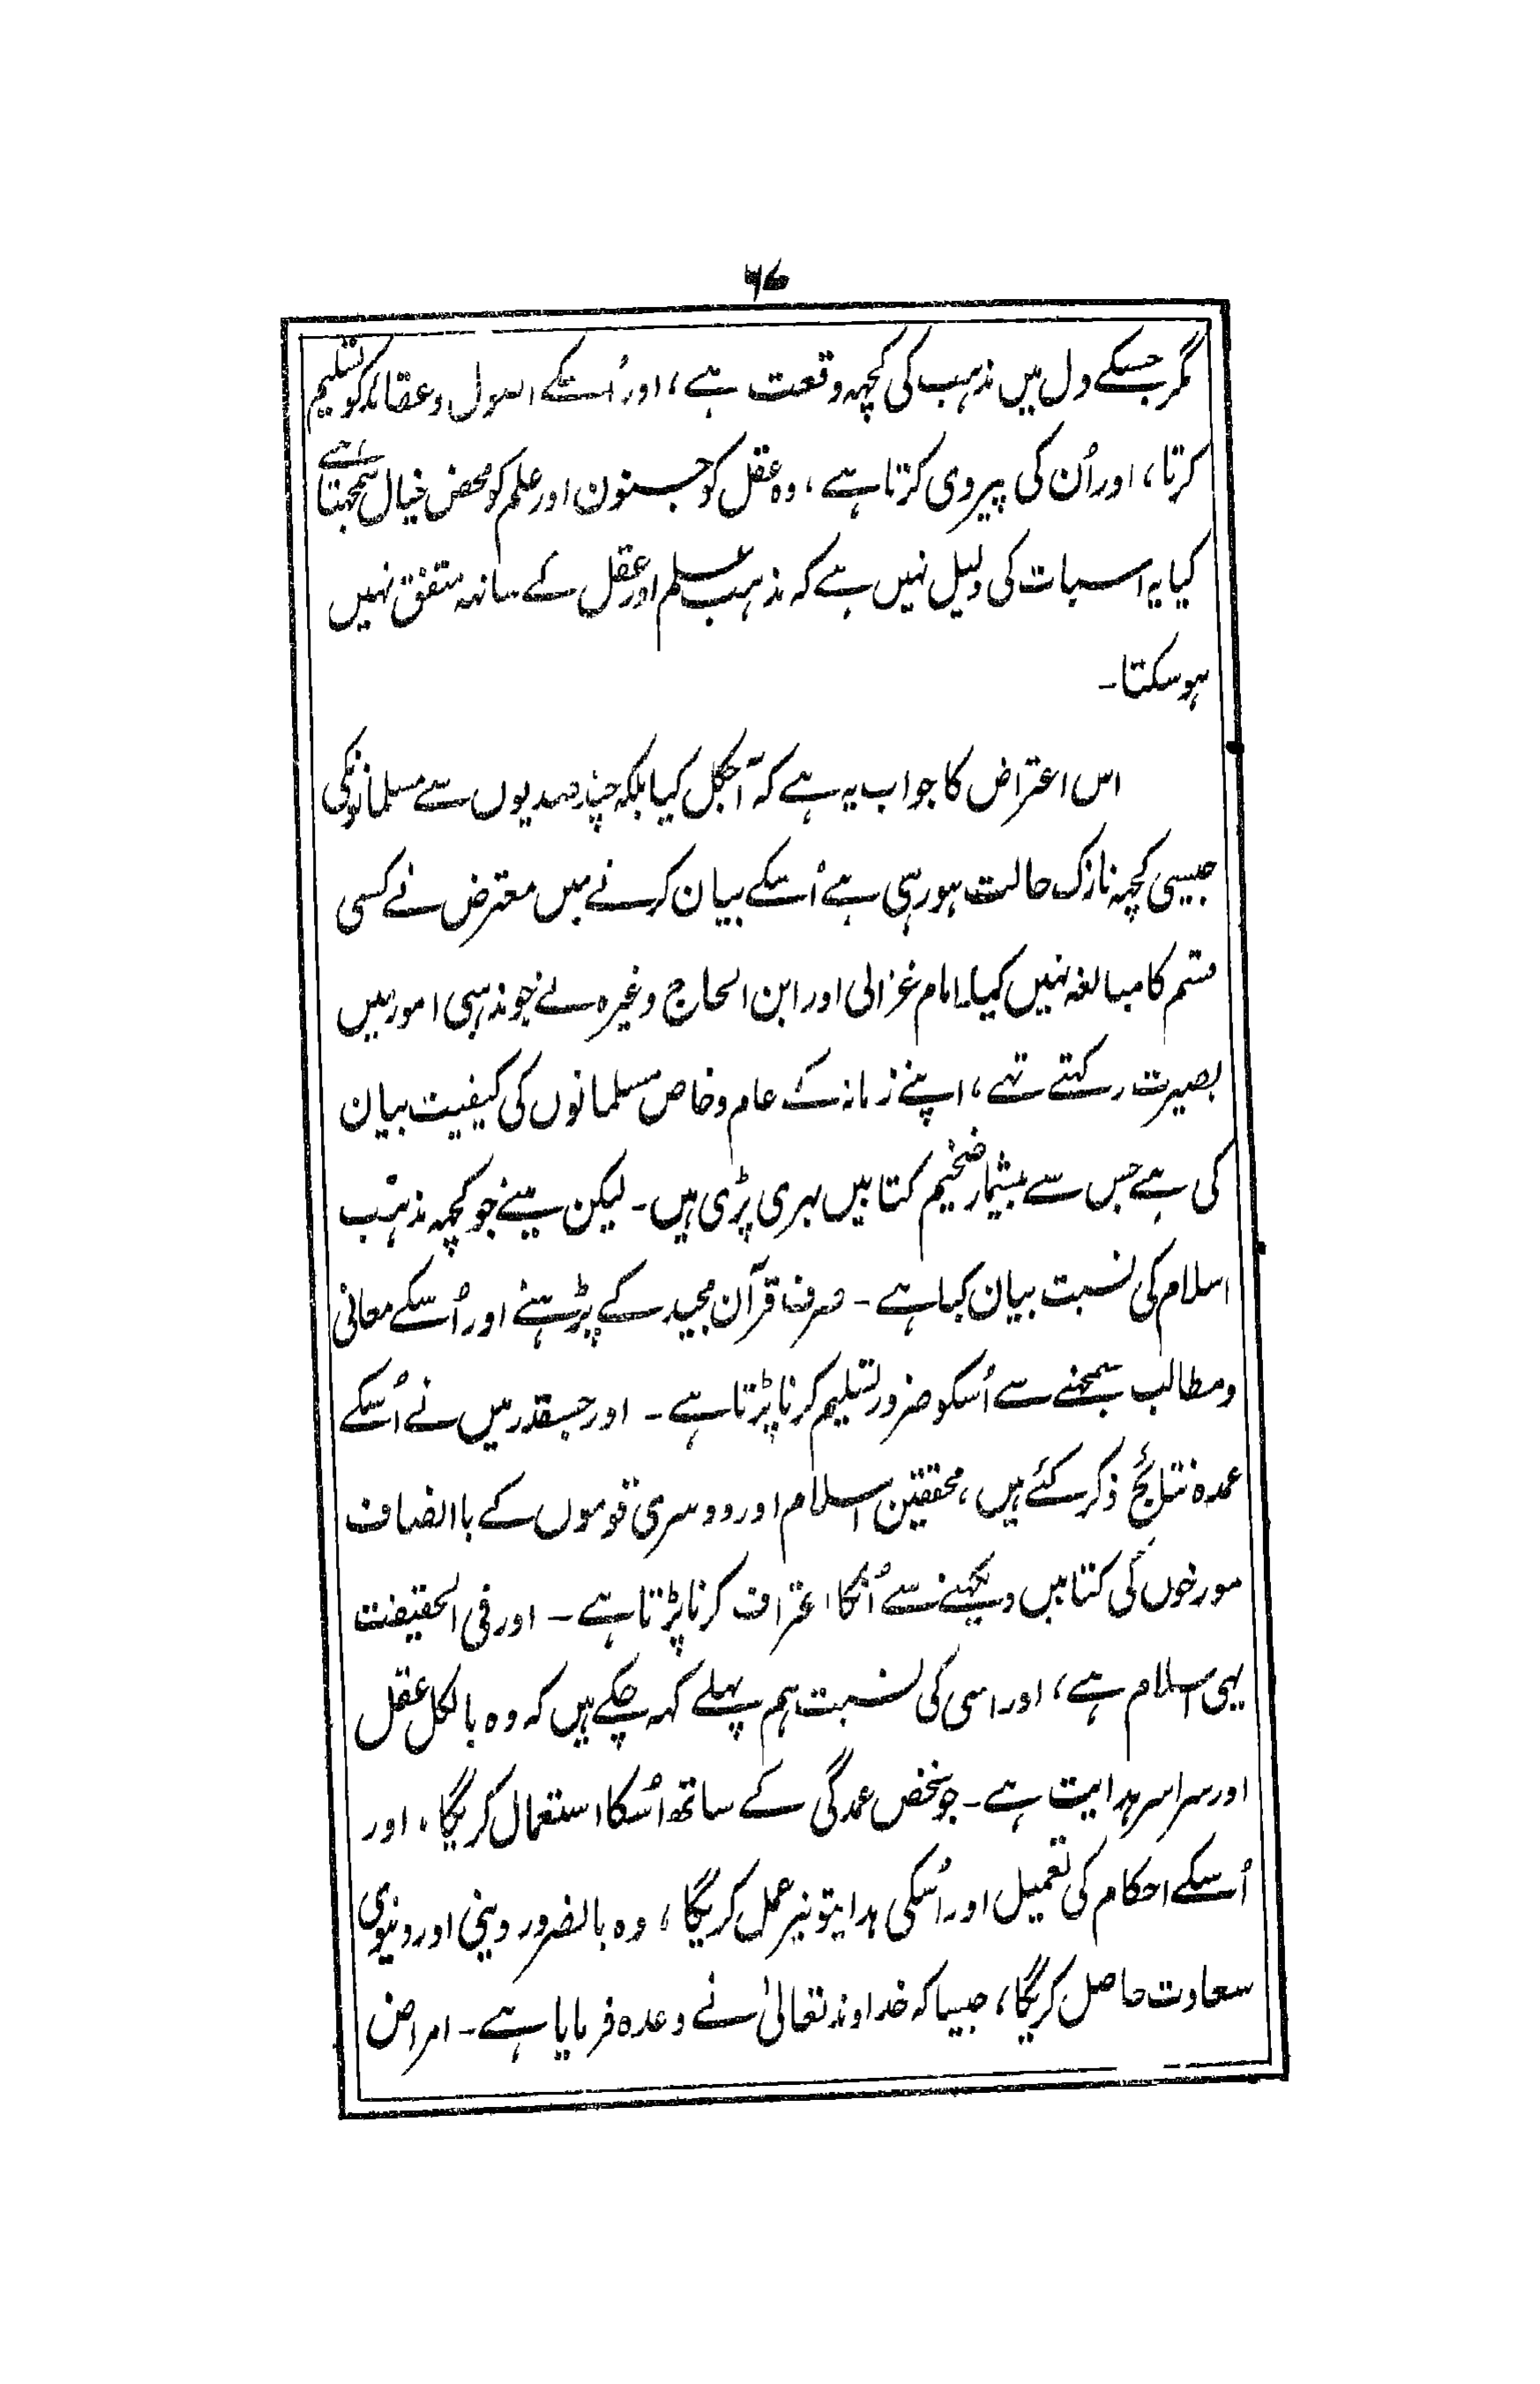 ۶۷
مگر جسکے دل میں مذہب کی کچہہ وقعت ہے، اور اُسکے اصول و عقائد کو تسلیم
کرتا، اور اُن کی پیروی کرتا ہے، وہ عقل کو جنون اور علم کو محض خیال سمجہتا ہے
کیا یہ اسبات کی دلیل نہیں ہے کہ مذہب علم اور عقل کے ساتہہ متفق نہیں
ہوسکتا۔
اس اعتراض کا جواب یہ ہے کہ آجکل کیا بلکہ چند صدیوں سے مسلمانونکی
جیسی کچہہ نازک حالت ہورہی ہے اُسکے بیان کرنے میں معترض نے کسی
قسم کا مبالغہ نہیں کیا۔ امام غزالی اور ابن الحاج وغیرہ نے جو مذہبی امور میں
بصیرت رکہتے تہے، اپنے زمانہ کے عام و خاص مسلمانوں کی کیفیت بیان
کی ہے جس سے بیشمار ضخیم کتابیں بہری پڑی ہیں۔ لیکن مینے جو کچہہ مذہب
اسلام کی نسبت بیان کیا ہے۔ صرف قرآن مجید کے پڑہنے اور اُسکے معانی
و مطالب سمجہنے سے اُسکو ضرور تسلیم کرنا پڑتا ہے۔ اور جسقدر میں نے اُسکے
عمدہ نتائج ذکر کئے ہیں، محققین اسلام اور دوسری قوموں کے باانصاف
مورخوں کی کتابیں دیکہنے سے اُنکا اعتراف کرنا پڑتا ہے۔ اور فی الحقیقت
یہی اسلام ہے، اور اسی کی نسبت ہم پہلے کہہ چکے ہیں کہ وہ بالکل عقل
اور سراسر ہدایت ہے۔ جو شخص عمدگی کے ساتھ اُسکا استعمال کریگا، اور
اُسکے احکام کی تعمیل اور اُسکی ہدایتونپر عمل کریگا، وہ بالضرور دینی اور دنیوی
سعادت حاصل کریگا، جیسا کہ خداوند تعالیٰ نے وعدہ فرمایا ہے۔ امراض